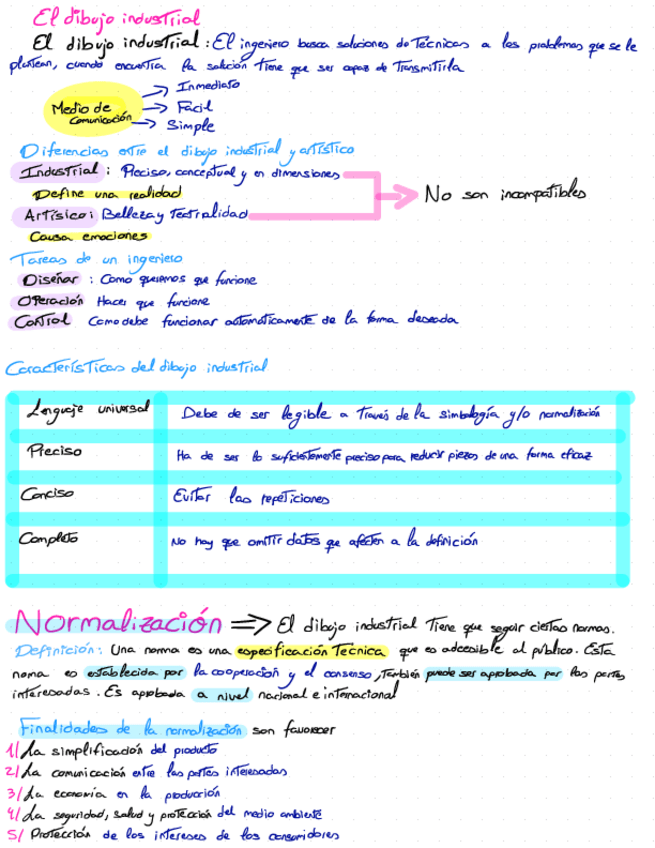 El dibujo industrial
El dibujo industrial: El ingeniero busca soluciones de Técnicas a los problemas que se le
plantean, cuando encuentra la solución tiene que ser capaz de transmitirla
Medio de Comunicación
→ Inmediato
→ Fácil
→ Simple
Diferencias entre el dibujo industrial y artístico
Industrial: Preciso, conceptual y en dimensiones
Define una realidad
→ No son incompatibles
Artísico: Belleza y Teatralidad
Causa emociones
Tareas de un ingeniero
Diseñar: Como queremos que funcione
Operación Hacer que funcione
Control Como debe funcionar automáticamente de la forma deseada
Características del dibujo industrial
Lenguaje universal Debe de ser legible a través de la simbología y/o normalización
Preciso Ha de ser lo suficientemente preciso para reducir piezas de una forma eficaz
Conciso Evitar las repeticiones
Completo No hay que omitir datos que afecten a la definición
Normalización => El dibujo industrial tiene que seguir ciertas normas.
Definición: Una norma es una especificación Técnica que es adcesible al público. Esta
norma es establecida por la cooperación y el consenso, también puede ser aprobada por las partes
interesadas. Es aprobada a nivel nacional e internacional
Finalidades de la normalización son favorecer
1/ La simplificación del producto
2/ La comunicación entre las partes interesadas
3/ La economía en la producción
4/ La seguridad, salud y protección del medio ambiente
5/ Protección de los intereses de los consumidores